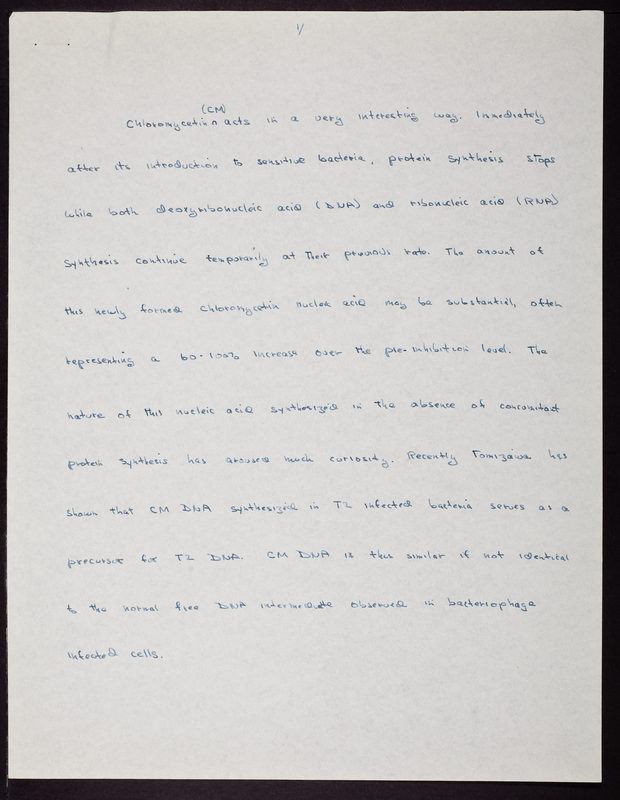 1/
(CM)
Chloromycetin ∧ acts in a very interesting way. Immediately
after its introduction to sensitive bacteria, protein synthesis stops
while both deoxyribonucleic acid (DNA) and ribonucleic acid (RNA)
synthesis continue temporarily at their previous rate. The amount of
this newly formed chloromycetin nucleic acid may be substantial, often
representing a 60-100% increase over the pre-inhibition level. The
nature of this nucleic acid synthesized in the absence of concomitant
protein synthesis has aroused much curiosity. Recently Tomizawa has
shown that CM DNA synthesized in T2 infected bacteria serves as a
precursor for T2 DNA. CM DNA is thus similar if not identical
to the normal free DNA intermediate observed in bacteriophage
infected cells.